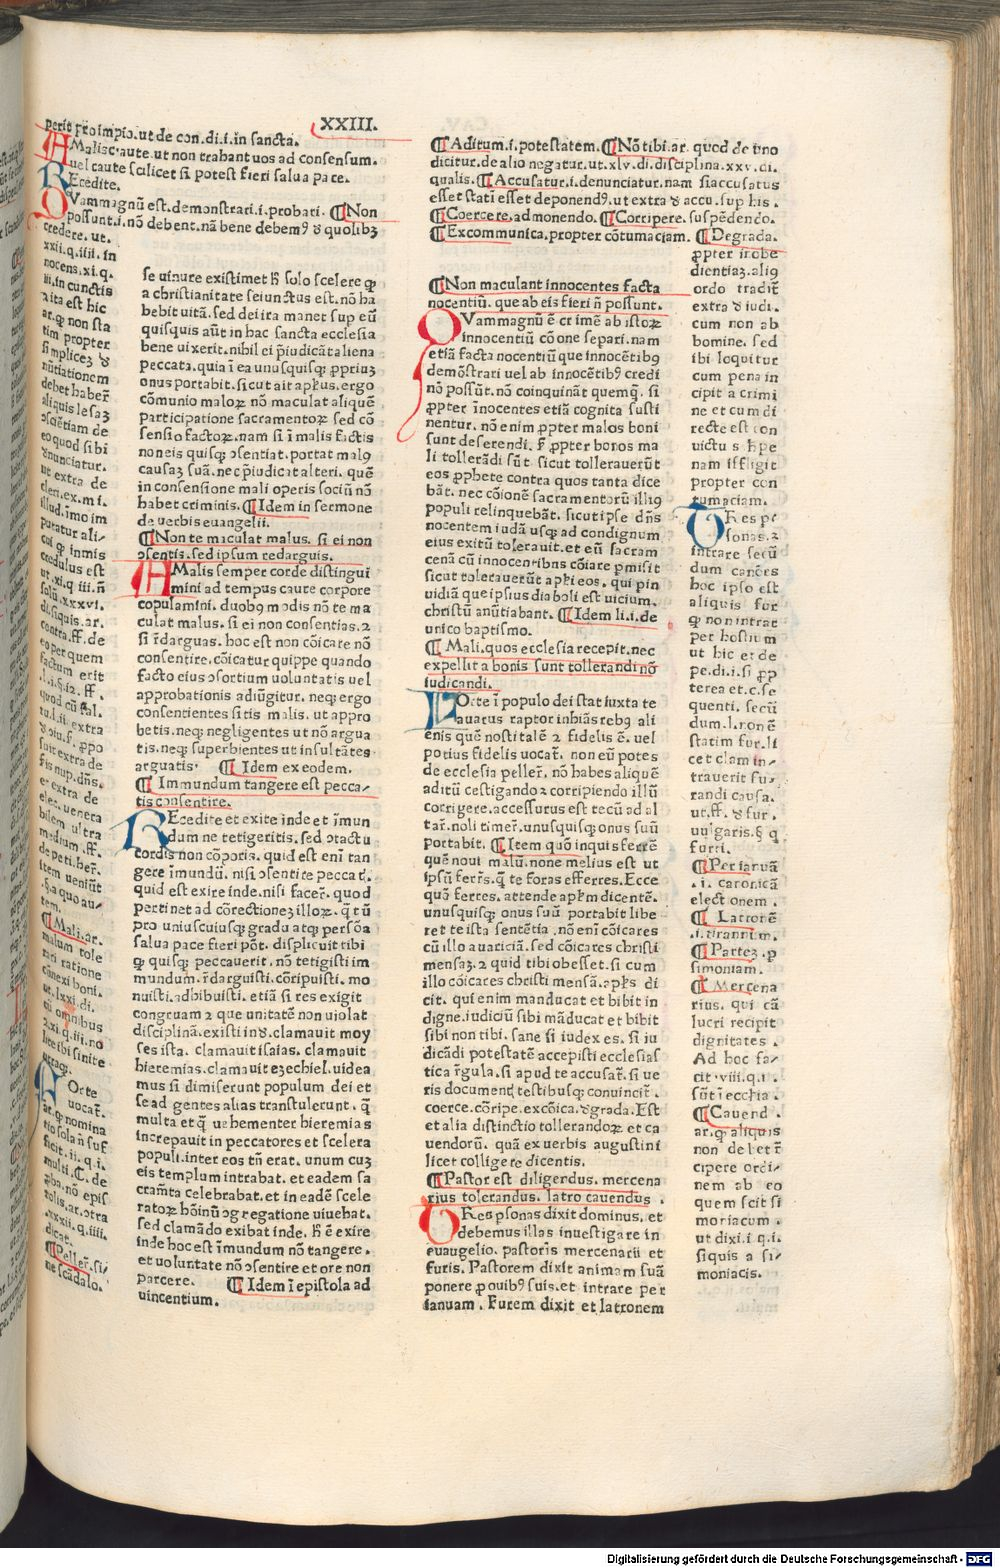 XXIII.
perit pro impio.ut de con.di.i.in sancta.
A Malis caute.ut non trahant uos ad consensum.
uel caute scilicet si potest fieri salua pace.
Recedite.
QVam magnū est.demonstrari.i.probari. ¶Non
possunt.i.nō debent.nā bene debemꝯ ꝺ quolibꝫ
credere.ut.
xxii.q.iiii.in
nocens.xi.q.
iii.in cunctis
ita est hic
ar.ꝙ non sta
tim propter
simpliceꝫ ꝺ
nūtiationem
debet haberr̄
aliquis lesaꝫ
ↄsciētiam de
eo quod sibi
ꝺnunciatur.
ut extra de
clen.ex.mi.
illud.imo im
putatur ali/
cui ꝙ inmis
credulus est
ut.xi.q iii.n̄
solū.xxxvi.
di.siquis.ar.
contra.ff.de
eo per quem
factum erit
.l.i.§.i2. ff.
quod cū fal.
tu.l.ii.extra
fis nup.dn̄s.
e. extra de
elec.uenera
bilem ultra
medium.ff.
de peti.her̄.
item ueniūt
.§.a quo au/
tem.
¶Mali.ar.
malum tole
rari ratione
cānexi boni.
ut.lxxi.di.
cū omnibus
2.xi.q.iii.no
lite ibi sinite
utraqꝫ.
FOrte
uocat̄.
ar.ꝙ nomina
tio solā n̄ suf
ficit.ii.q.i.
multi. C. de
ꝓba.nō epis
tolis.ar.ↄtra
.xxxii.q.iiii.
dicat.
¶Peller̄.si/
ne scādalo.
se uiuure existimet h̄ solo scelere ꝙ
a christianitate seiunctus est.nō ha
bebit uitā.sed dei ira manet sup eū
quisquis aūt in hac sancta ecclesia
bene uixerit.nihil ei p̄iudicāt aliena
peccata.quia ī ea unusquisqꝫ ꝓpriuꝫ
onus portabit.sicut ait apl̄us.ergo
cōmunio maloꝝ nō maculat aliquē
participatione sacramentoꝝ sed cō
sensio factoꝝ.nam si ī malis factis
non eis quisqꝫ ↄsentiat.portat malꝯ
causaꝫ suā.nec p̄iudicat alteri. quē
in consensione mali operis sociū nō
habet criminis. ¶Idem in sermone
de uerbis euangelii.
¶Non te maculat malus. si ei non
ↄsentis.sed ipsum redarguis.
A Malis semper corde distingui
mini ad tempus caute corpore
copulamini. duobꝯ modis nō te ma
culat malus. si ei non consentias.2
si r̄darguas. hoc est non cōicare nō
consentire.cōicatur quippe quando
facto eius ↄsortium uoluntatis uel
approbationis adiūgitur. neqꝫ ergo
consentientes sitis malis. ut appro
betis.neqꝫ negligentes ut nō argua
tis.neqꝫ superbientes ut insultātes
arguatis· ¶ Idem ex eodem.
¶ Immundum tangere est pecca/
tis consentire.
REcedite et exite inde et īmun
dum ne tetigeritis.sed ↄtactu
cordis non cōporis. quid est eni tan
gere īmundū. nisi ↄsentire peccat̄.
quid est exire inde.nisi facer̄. quod
pertinet ad cōrectioneꝫ illoꝝ. q̄ tū
pro uniuscuiusqꝫ gradu atqꝫ persōa
salua pace fieri pōt. displicuit tibi
ꝙ quisqꝫ peccauerit. nō tetigisti im
mundum.r̄darguisti.cōripuisti. mo
nuisti.adhibuisti. etiā si res exigit
congruam 2 que unitatē non uiolat
disciplinā.existi inꝺ.clamauit moy
ses ista. clamauit isaias. clamauit
hieremias.clamauit ezechiel.uidea
mus si dimiserunt populum dei et
se ad gentes alias transtulerunt. q̄
multa et q̄ uehementer hieremias
increpauit in peccatores et scelera
populi.inter eos tn̄ erat. unum cuꝫ
eis templum intrabat. et eadem sa
crāmta celebrabat. et in eadē scele
ratoꝝ hōinū ↄgregatione uiuebat.
sed clamādo exibat inde. h̄ ē exire
inde hoc est īmundum nō tangere.
et uoluntate nō ↄsentire et ore non
parcere. ¶Idem ī epistola ad
uincentium.
¶Aditum.i.potestatem. ¶Nō tibi.ar. quod de uno
dicitur.de alio negatur.ut.xlv.di.disciplina.xxv.di.
qualis. ¶Accusatur.i.denunciatur.nam si accusatus
esset stati esset deponendꝯ.ut extra ꝺ accu.sup his.
¶Coercere.admonendo. ¶Corripere. suspēdendo.
¶Excommunica.propter cōtumaciam. ¶Degrada.
¶Non maculant innocentes facta
nocentiū. que ab eis fieri n̄ possunt.
QVam magnū ē crimē ab istoꝝ
innocentiū cōone separi.nam
etiā facta nocentiū que innocētibꝯ
demōstrari uel ab innocētibꝯ credi
nō possūt.nō coinquināt quemqꝫ. si
ꝓpter īnocentes etiā cognita susti
nentur. nō enim ꝓpter malos boni
sunt deserendi. s̄ ꝓpter bonos ma
li tollerādi sūt. sicut tollerauerūt
eos ꝓphete contra quos tanta dice
bāt. nec cōionē sacramentorū illiꝯ
populi relinquebāt. sicut ipse dn̄s
nocentem iudā usqꝫ ad condignum
eius exitū tolerauit.et eū sacram
cenā cū innocentibus cōiare ꝑmisit
sicut tolerauerūt apl̄i eos. qui pin
uidiā que ipsius diaboli est uicium.
christū anūtiabant. ¶Idem li.i.de
unico baptismo.
¶ Mali.quos ecclesia recepit.nec
expellit a bonis sunt tollerandi nō
iudicandi.
FOrte ī populo dei stat iuxta te
auarus raptor inhiās rebꝯ ali
enis quē nosti talē 2 fidelis ē. uel
potius fidelis uocat̄. non eū potes
de ecclesia peller̄. nō habes aliquē
aditū castigando 2 corripiendo illū
corrigere.accessurus est tecū ad al
tar̄.noli timer̄.unusquisqꝫ onus suū
portabit. ¶Item quō inquis ferrē
quē noui malū.nonne melius est ut
ipsū ferr̄s. q̄ te foras efferres. Ecce
quō ferres. attende apl̄m dicentē.
unusquisqꝫ onus suū portabit libe
ret te ista sentētia .nō eni cōicares
cū illo auariciā. sed cōicares christi
mensaꝫ. 2 quid tibi obesset. si cum
illo cōicares christi mensā. apl̄s di
cit. qui enim manducat et bibit in
digne.iudiciū sibi māducat et bibit
sibi non tibi. sane si iudex es. si iu
dicādi potestatē accepisti ecclesias
tica r̄gula. si apud te accusat̄. si ue
ris document̄ testibusqꝫ conuincit̄.
coerce.cōripe.excōica.ꝺgrada. Est
et alia distinctio tollerandoꝝ et ca
uendorū. quā ex uerbis augustini
licet colligere dicentis.
¶Pastor est diligendus. mercena
rius tolerandus. latro cauendus .
TRes ꝑsonas dixit dominus. et
debemus illas inuestigare in
euaugelio. pastoris mercenarii et
furis. Pastorem dixit animam suā
ponere ꝓ ouibꝯ suis.et intrare per
ianuam . Furem dixit et latronem
ꝓpter inobe
dientiaꝫ.aliq
ordo tradit̄
extra ꝺ iudi.
cum non ab
homine. sed
ibi loquitur
cum pena in
cipit a crimi
ne et cum di
recte est con
victus h̄ pe
nam iffligit
propter con
tumaciam.
TRes pr̄
sonas.2
intrare secū
dum canōes
hoc ipso est
aliquis fur
ꝙ non intrat
per hostium
ut hic et de
pe.di.i.si ꝓp
terea et.c.se
quenti. secū
dum.l.ronē
statim fur.li
cet clam in/
trauerit fu/
randi causa.
ut.ff. ꝺ fur.
uulgaris.§ q
furti.
¶Per ianuā
. i. caronicā
elect onem .
¶ Latronē
.i. tirannum.
¶Parteꝫ. ꝑ
simoniam.
¶ Mercena
rius. qui cā
lucri recipit
dignitates .
Ad hoc fa/
cit.viii.q.i.
sūt ī ecclia.
¶Cauend.
ar.ꝙ aliquis
non debet r̄
cipere ordi/
nem ab eo
quem scit si
moriacum .
ut dixi.i.q.i.
siquis a si/
moniacis.
Digitalisierung gefördert durch die Deutsche Forschungsgemeinschaft - DFG